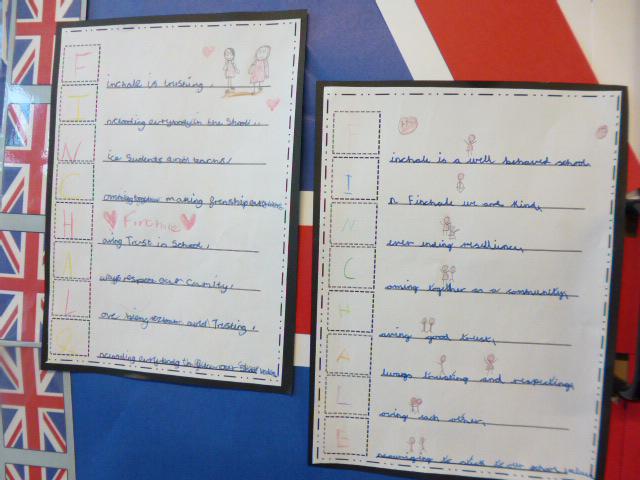 F
inchale is trusting.
I
ncluding everybody in the School.
N
ice Students and
C
oming together making frenship
H
♥ Finchale ♥
aving Trust in School.
A
lways respect our
L
ove being and Trusting.
E
ncluding everybody to follow our
F
inchale is a well behaved school.
I
n Finchale we are kind.
N
ever ending resilience.
C
oming together as a community.
H
aving good trust.
A
lways trusting and respecting
L
oving each other.
E
ncouraging to stick to our school